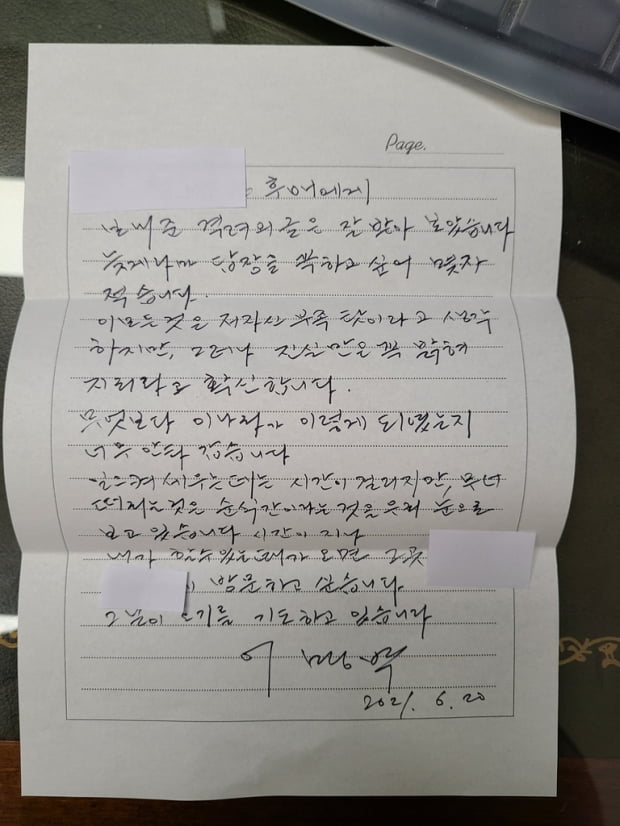 Page.
후배에게
보내준 격려의 글은 잘 받아 보았습니다
늦게나마 답장을 꼭하고 싶어 몇자
적습니다.
이모든것은 저자신 부족 탓이라고 생각
하지만, 그러나 진실만은 꼭 밝혀
지리라고 확신합니다.
무엇보다 이나라가 이렇게 되었는지
너무 안타 깝습니다
일으켜 세우는데는 시간이 걸리지만, 무너
떠리는것은 순식간이라는것은 우리 눈으로
보고 있습니다 시간이 지나
내가 할수있는때가 오면 그곳
방문하고 싶습니다
그날이 오기를 기도하고 있습니다
이명박
2021. 6. 20